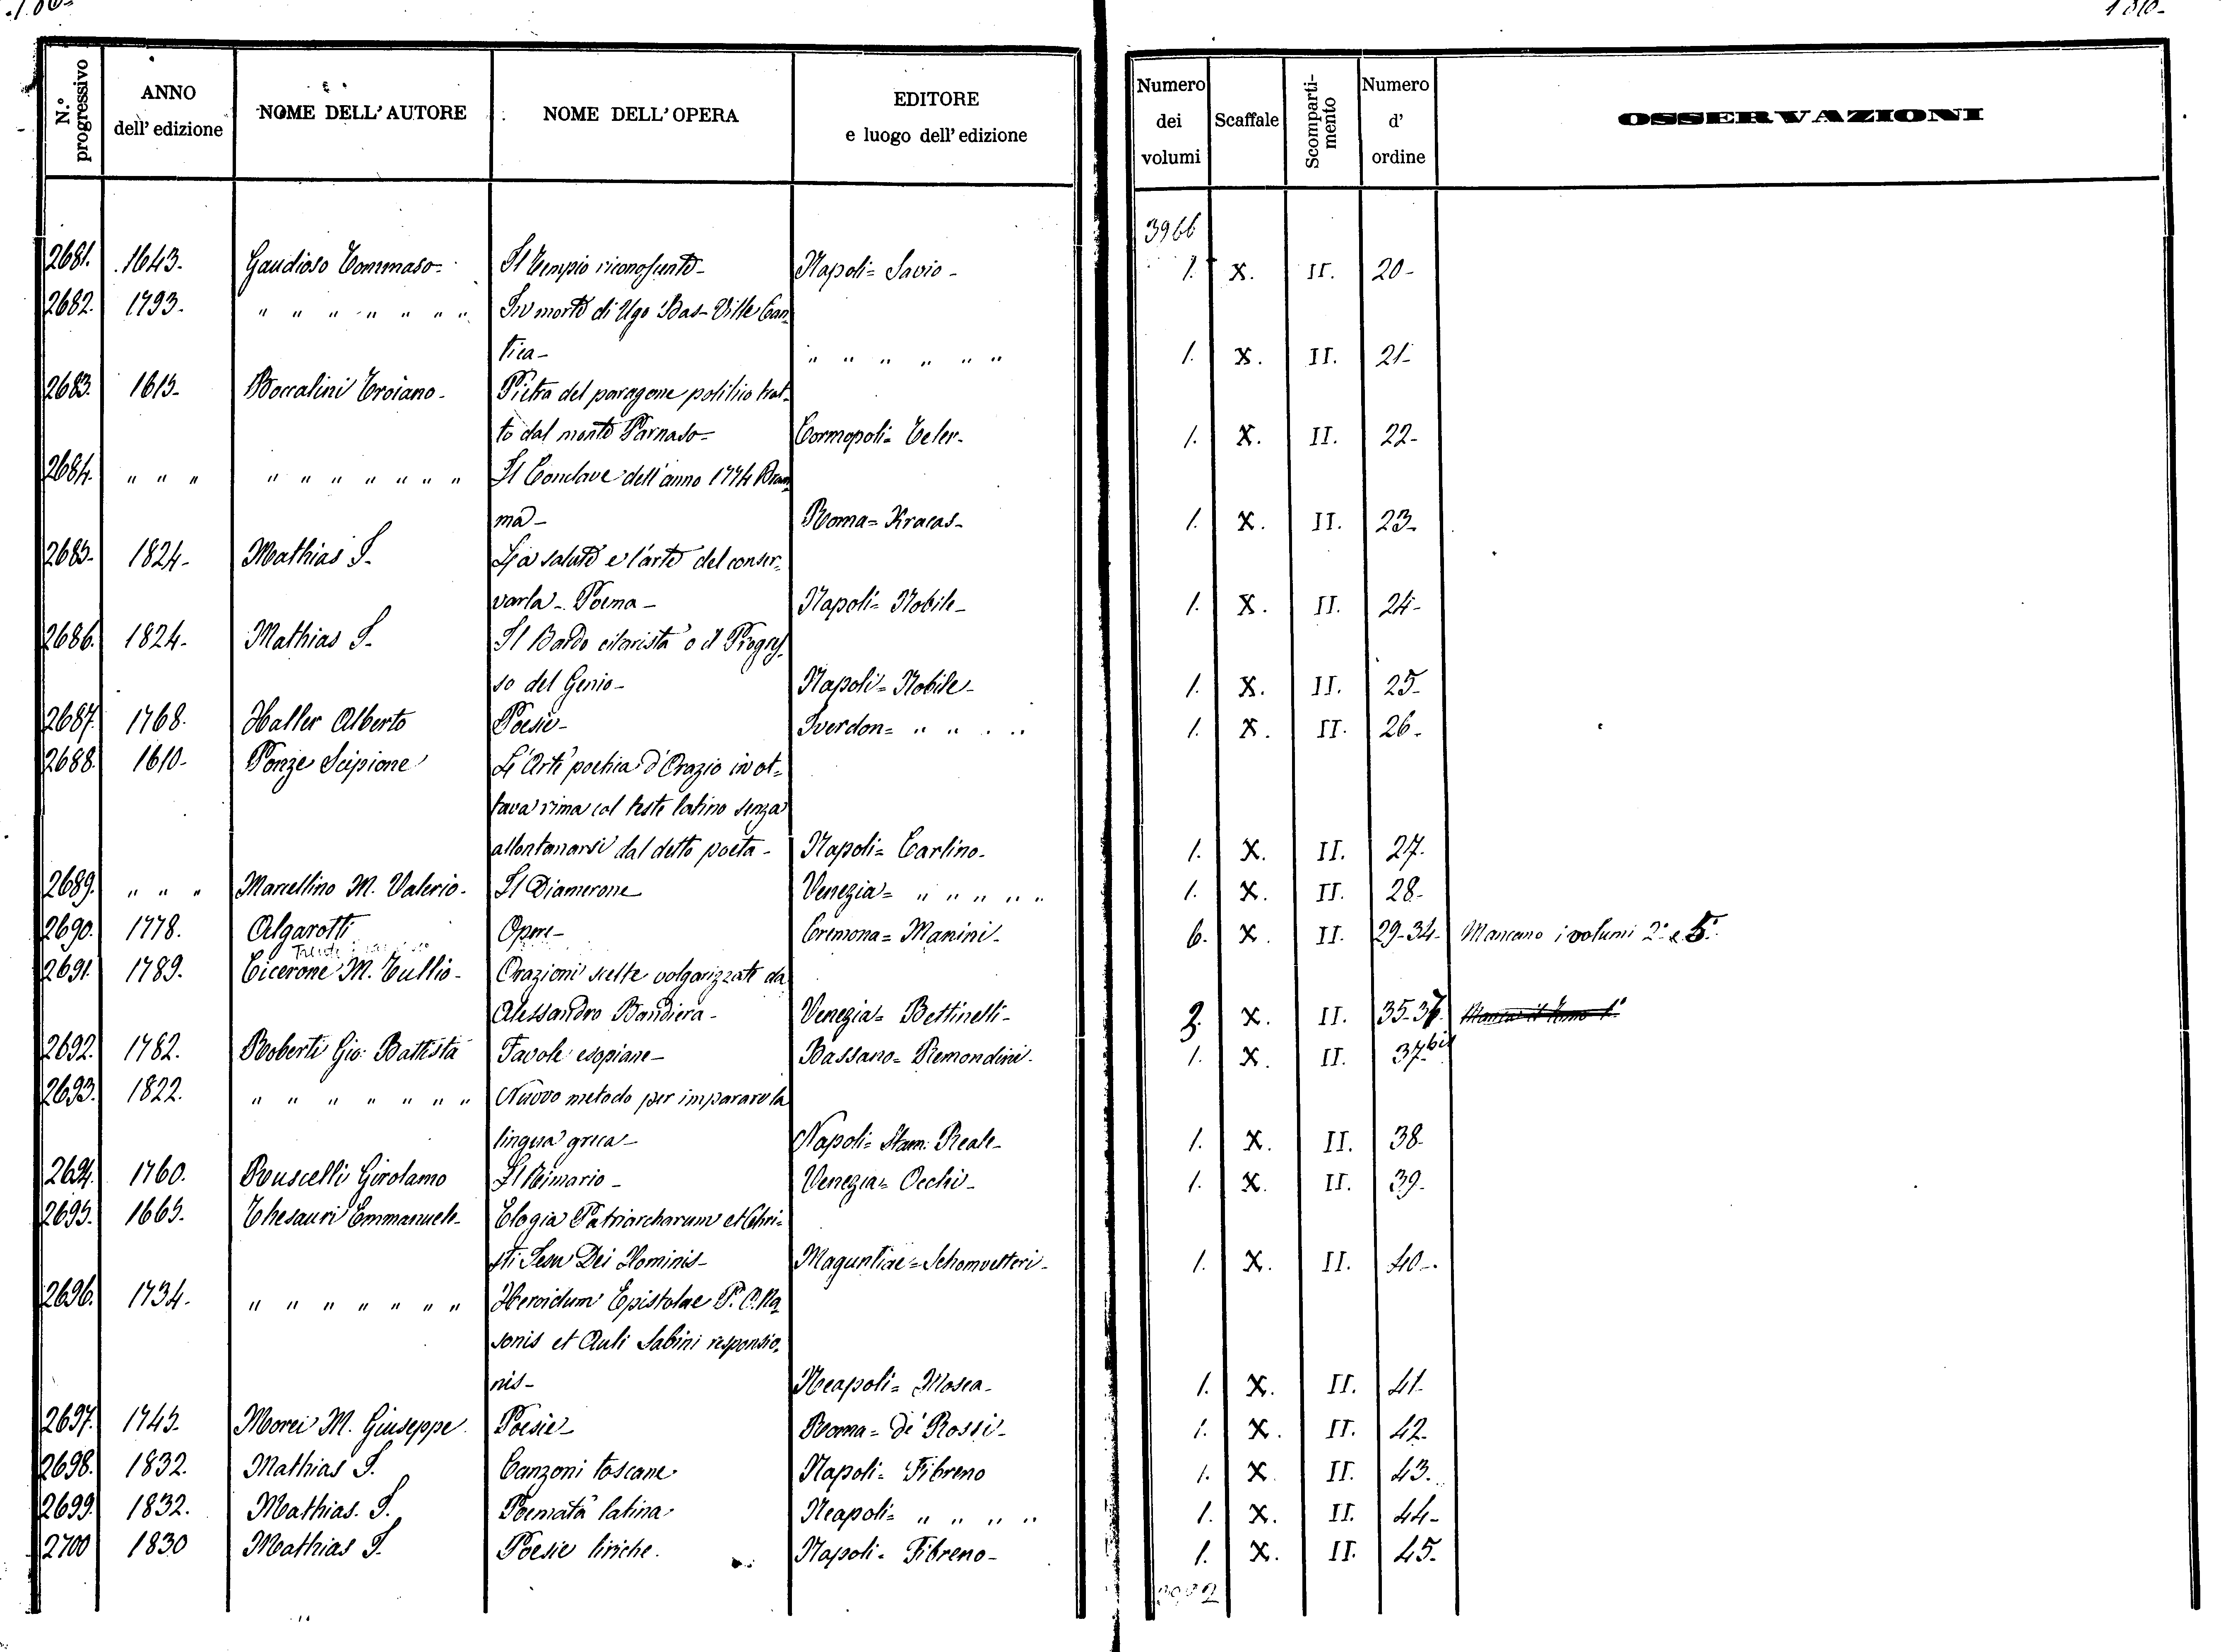 180-
180-
N.° progressivo
ANNO dell' edizione
NOME DELL' AUTORE
NOME DELL' OPERA
EDITORE e luogo dell' edizione
Numero dei volumi
Scaffale
Scomparti-mento
Numero d' ordine
OSSERVAZIONI
3966
2681. 1643. Gaudioso Tommaso- Il Tempio Napoli= Savio- 1. X. II. 20-
2682. 1793. " " " " " " " In morte di Ugo Bas-Ville Can
tica- " " " " " " 1. X. II. 21-
2683. 1615- Boccalini Troiano- Pietra del paragone politico trat-
to dal monte Parnaso- Cormopoli= Teler- 1. X. II. 22-
2684. " " " " " " " " " " Il Conclave dell'anno 1774 Dram
ma- Roma= Kracas- 1. X. II. 23-
2685- 1824- Mathias T- La salute e l'arte del conser-
varla- Poema- Napoli= Nobile- 1. X. II. 24-
2686. 1824- Mathias T- Il Bardo citarista o il Progres
so del Genio- Napoli= Nobile- 1. X. II. 25-
2687. 1768. Haller Alberto Poesie- Iverdon= " " " " 1. X. II. 26-
2688. 1610- Ponze Scipione L'Arte poetica d'Orazio in ot=
tava rima col testo latino senza
allontanarsi dal detto poeta- Napoli= Carlino- 1. X. II. 27-
2689. " " " Marcellino M. Valerio- Il Diamerone Venezia= " " " " " 1. X. II. 28-
2690. 1778. Algarotti Opere- Cremona= Manini- 6. X. II. 29-34- Mancano i volumi 2° e 5°.
2691. 1789. Cicerone M. Tullio- Orazioni scelte volgarizzate da
Alessandro Bandiera- Venezia= Bettinelli- 3. X. II. 35-37.
2692. 1782. Roberti Gio: Battista Favole esopiane- Bassano= Remondini- 1. X. II. 37bis
2693. 1822. " " " " " " " Nuovo metodo per imparare la
lingua greca- Napoli= Stam: Reale- 1. X. II. 38-
2694. 1760. Ruscelli Girolamo Il Rimario- Venezia= Occhi- 1. X. II. 39-
2695. 1665. Thesauri Emmanuele- Elogia Patriarcharum et Chri=
sti Iesu Dei Hominis- Maguntiae= Schonvetteri- 1. X. II. 40-
2696. 1734. " " " " " " " Heroidum Epistolae P. O. Na
sonis et Auli Sabini responsio-
nis- Neapoli= Mosca- 1. X. II. 41-
2697. 1745- Morei M. Giuseppe Poesie- Roma= De' Rossi- 1. X. II. 42-
2698. 1832. Mathias T. Canzoni toscane- Napoli= Fibreno 1. X. II. 43.
2699. 1832. Mathias. T. Poemata latina- Neapoli= " " " " 1. X. II. 44-
2700 1830 Mathias T. Poesie liriche. Napoli= Fibreno- 1. X. II. 45-